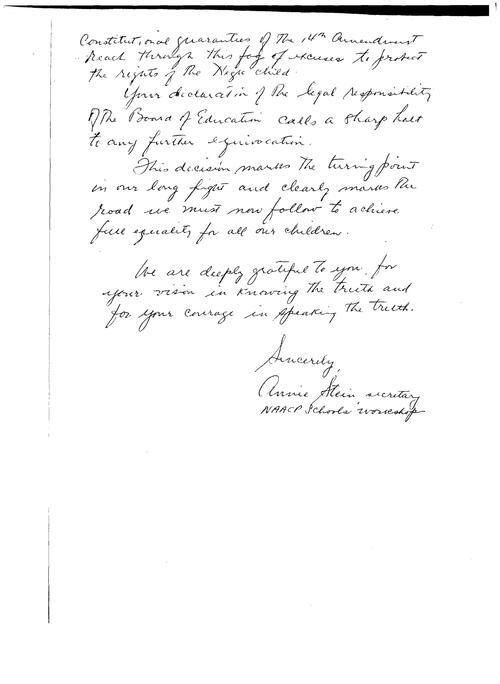 Constitutional guaranties of the 14th Amendment
reach through this fog of excuses to protect
the rights of the Negro child.
Your declaration of the legal responsibility
of the Board of Education calls a sharp halt
to any further equivocation.
This decision marks the turning point
in our long fight and clearly marks the
road we must now follow to achieve
full equality for all our children.
We are deeply grateful to you for
your vision in knowing the truth and
for your courage in speaking the truth.
Sincerely,
Annie Stein, secretary
NAACP Schools' Workshop